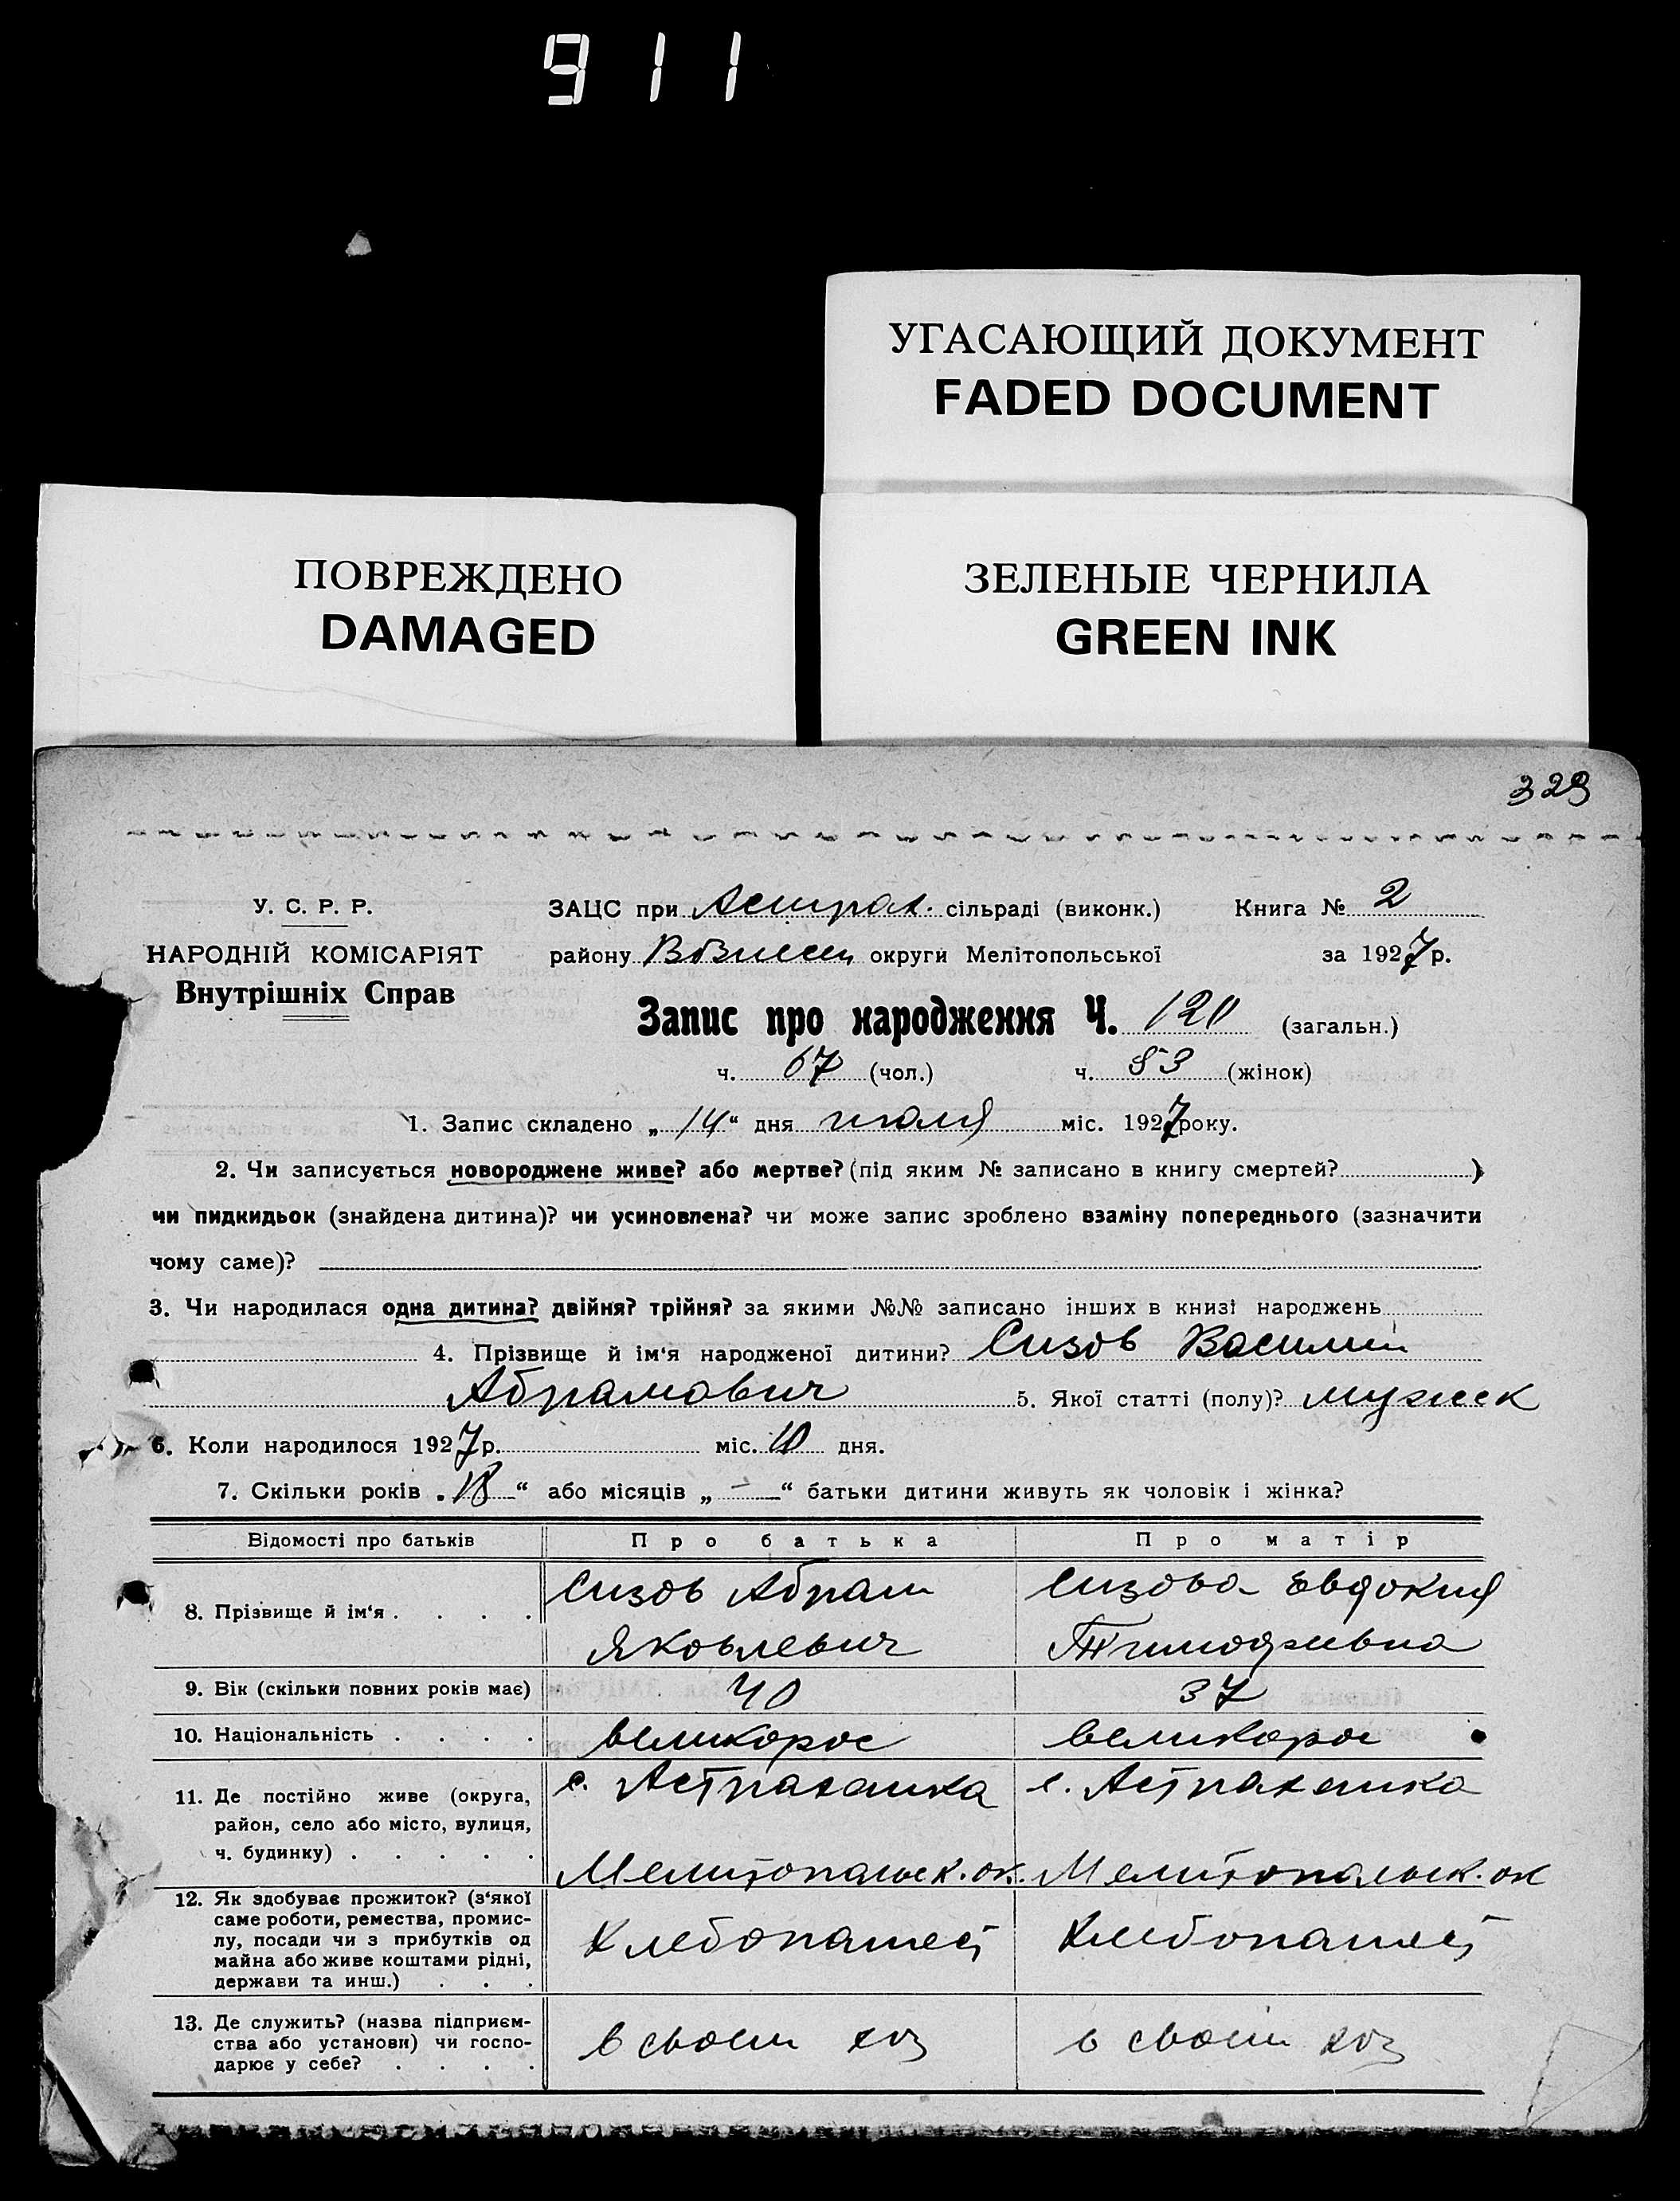 911
УГАСАЮЩИЙ ДОКУМЕНТ
FADED DOCUMENT
ПОВРЕЖДЕНО
DAMAGED
ЗЕЛЕНЫЕ ЧЕРНИЛА
GREEN INK
329
У. С. Р. Р.
НАРОДНІЙ КОМІСАРІЯТ
Внутрішніх Справ
ЗАЦС при Астрах. сільраді (виконк.) Книга № 2
району округи Мелітопольської за 1927 р.
Запис про народження Ч. 120 (загальн.)
ч. 67 (чол.) ч. 53 (жінок)
1. Запис складено „ 14 “ дня июля міс. 1927 року.
2. Чи записується новороджене живе? або мертве? (під яким № записано в книгу смертей? )
чи пидкидьок (знайдена дитина)? чи усиновлена? чи може запис зроблено взаміну попереднього (зазначити
чому саме)?
3. Чи народилася одна дитина? двійня? трійня? за якими №№ записано інших в книзі народжень
4. Прізвище й ім'я народженої дитини? Сизов Василий
Абрамович 5. Якої статті (полу)? мужск
6. Коли народилося 1927 р. міс. 10 дня.
7. Скільки років „ 18 “ або місяців „ — “ батьки дитини живуть як чоловік і жінка?
Відомості про батьків Про батька Про матір
8. Прізвище й ім'я . . . . Сизов Абрам Сизова Евдокия
Яковлевич Тимофеевна
9. Вік (скільки повних років має) 40 37
10. Національність . . . . великорос великорос
11. Де постійно живе (округа, с. Астраханка с. Астраханка
район, село або місто, вулиця,
ч. будинку) . . . . . Мелитопольск. ок. Мелитопольск. ок
12. Як здобуває прожиток? (з'якої
саме роботи, ремества, промис-
лу, посади чи з прибутків од Хлебопашец Хлебопашец
майна або живе коштами рідні,
держави та инш.) . . .
13. Де служить? (назва підприєм-
ства або установи) чи госпо- в своем хоз в своем хоз
дарює у себе? . . . .